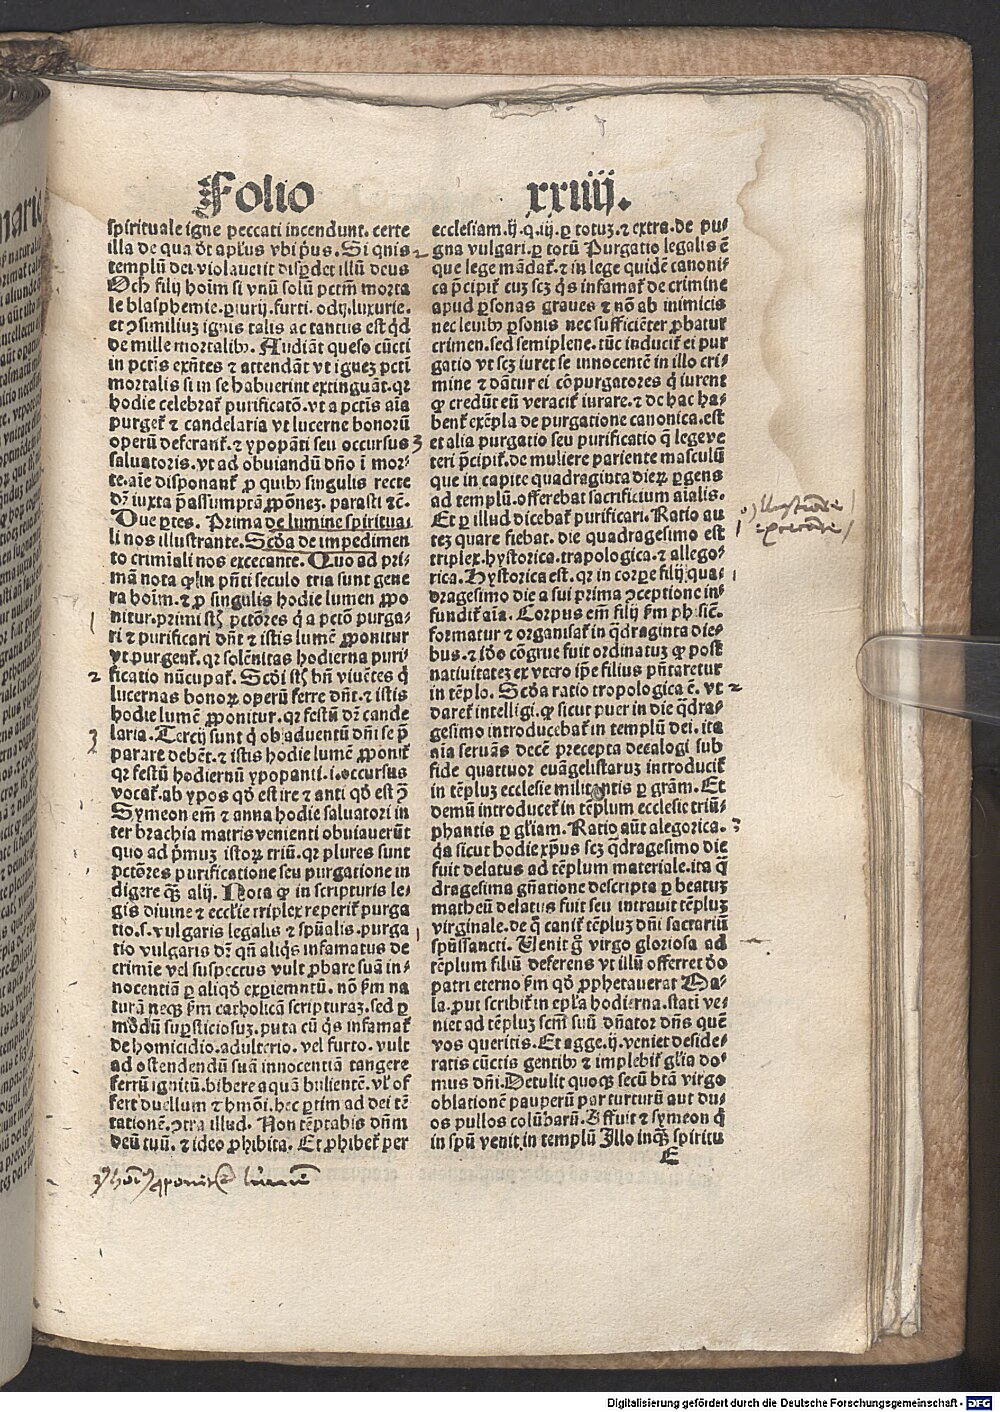 Folio xxiiij.
spirituale igne peccati incendunt. certe
illa de qua dr̄ apl̄us vbi p̄us. Si quis
templū dei violauerit disꝑdet illū deus
Och filij hoīm si vnū solū pctm̄ morta
le blasphemie. ꝑiurij. furti. odij. luxurie.
et ↄsimiliuꝫ ignis talis ac tantus est q̄d
de mille mortalibꝰ. Audiāt queso cūcti
in pctīs exn̄tes ⁊ attendāt vt igneꝫ pctī
mortalis si in se habuerint extinguāt. qꝛ
hodie celebrat̄ purificatō. vt a pctīs aīa
purget̄ ⁊ candelaria vt lucerne bonorū
operū deferant̄. ⁊ ypopāti seu occursus
saluatoris. vt ad obuiandū dn̄o ī mor⸗
te. aīe disponant̄ ꝓ quibꝰ singulis recte
dr̄ iuxta p̄assumptā ꝓpōneꝫ. parasti ⁊c̄.
Due ꝑtes. Prima de lumine spiritua⸗
li nos illustrante. Scḋa de impedimen
to crimīali nos excecante. Quo ad pri⸗
mā nota ꝙ in pn̄ti seculo tria sunt gene
ra hoīm. ⁊ ꝓ singulis hodie lumen ꝓpo
nitur. primi st̄ꝫ pctōres q̇ a pctō purga⸗
ri ⁊ purificari dn̄t ⁊ istis lumē ꝓponitur
vt purgent̄. qꝛ solēnitas hodierna puri⸗
ficatio nūcupat̄. Scḋi st̄ꝫ bn̄ viuētes q̇
lucernas bonoꝝ operū ferre dn̄t. ⁊ istis
hodie lumē ꝓponitur. qꝛ festū dr̄ cande
laria. Tercij sunt q̇ ob aduentū dn̄i se p̄
parare debēt. ⁊ istis hodie lumē ꝓponit̄
qꝛ festū hodiernū ypopanti. i. occursus
vocat̄. ab ypos qḋ est ire ⁊ anti qḋ est ↄ̄
Symeon em̄ ⁊ anna hodie saluatori in
ter brachia matris venienti obuiauerūt
quo ad p̄muꝫ istoꝝ triū. qꝛ plures sunt
pctōres purificatione seu purgatione in
digere qꝫ̄ alij. Nota ꝙ in scripturis le⸗
gis diuine ⁊ eccl̄ie triplex reperit̄ purga
tio. s. vulgaris legalis ⁊ spūalis. purga
tio vulgaris dr̄ qn̄ aliq̇s infamatus de
crimīe vel suspectus vult ꝓbare suā in⸗
nocentiā ꝑ aliqḋ exꝑiemntū. nō ẜm na
turā neqꝫ ẜm catholicā scripturaꝫ. sed ꝑ
mōdū suꝑsticiosuꝫ. puta cū q̇s infamat̄
de homicidio. adulterio. vel furto. vult
ad ostendendū suā innocentiā tangere
ferrū ignitū. bibere aquā bulientē. vl̄ of
fert duellum ⁊ hm̄ōi. hec ꝑtim ad dei tē
tationē. ↄtra illud. Non tēptabis dn̄m
deū tuū. ⁊ ideo ꝓhibita. Et ꝓhibet̄ per
ecclesiam. ij. q. iij. ꝑ totuꝫ. ⁊ extra. de pu⸗
gna vulgari. ꝑ totū Purgatio legalis ē
que lege mādat̄. ⁊ in lege quidē canoni⸗
ca p̄cipit̄ cuꝫ scꝫ q̇s infamat̄ de crimine
apud ꝑsonas graues ⁊ nō ab inimicis
nec leuibꝰ ꝑsonis nec sufficiēter ꝓbatur
crimen. sed semiplene. tūc inducit̄ ei pur
gatio vt scꝫ iuret se innocentē in illo cri⸗
mine ⁊ dātur ei cōpurgatores q̇ iurent
ꝙ credūt eū veracit̄ iurare. ⁊ de hac ha⸗
bent̄ exēpla de purgatione canonica. est
et alia purgatio seu purificatio q̄ lege ve
teri p̄cipit̄. de muliere pariente masculū
que in capite quadraginta dieꝝ ꝑgens
ad templū. offerebat sacrificium aīalis.
Et ꝑ illud dicebat̄ purificari. Ratio au
teꝫ quare fiebat. die quadragesimo est
triplex. hystorica. trapologica. ⁊ allego⸗
rica. Hystorica est. qꝛ in corꝑe filij qua⸗
dragesimo die a sui prima ↄceptione in⸗
fundit̄ aīa. Corpus em̄ filij ẜm ph̄s sic̄.
formatur ⁊ organisat̄ in q̄draginta die⸗
bus. ⁊ iḋo cōgrue fuit ordinatuꝫ ꝙ post
natiuitateꝫ ex vtero ip̄e filius pn̄taretur
in tēplo. Scḋa ratio tropologica ē. vt
daret̄ intelligi. ꝙ sicut puer in die q̄dra⸗
gesimo introducebat̄ in templū dei. ita
aīa seruās decē precepta decalogi sub
fide quattuor euāgelistaruꝫ introducit̄
in tēpluꝫ ecclesie militantis ꝑ grām. Et
demū introducet̄ in tēplum ecclesie triū⸗
phantis ꝑ gl̄iam. Ratio aūt alegorica.
q̇a sicut hodie xp̄us scꝫ q̄dragesimo die
fuit delatus ad tēplum materiale. ita q̄
dragesima gn̄atione descripta ꝑ beatuꝫ
matheū delatus fuit seu intrauit tēpluꝫ
virginale. de q̄ canit̄ tēpluꝫ dn̄i sacrariū
spūssancti. Uenit g̊ virgo gloriosa ad
tēplum filiū deferens vt illū offerret ḋo
patri eterno ẜm qḋ ꝓphetauerat Ma⸗
la. put scribit̄ in epl̄a hodierna. statī ve⸗
niet ad tēpluꝫ scm̄ suū dn̄ator dn̄s quē
vos queritis. Et agge. ij. veniet deside⸗
ratis cūctis gentibꝰ ⁊ implebit̄ gl̄ia do⸗
mus dn̄i. Detulit quoqꝫ secū btā virgo
oblationē pauperū par turturū aut du⸗
os pullos colūbarū. Affuit ⁊ symeon q̇
in spū venit in templū Illo inqꝫ spiritu
E